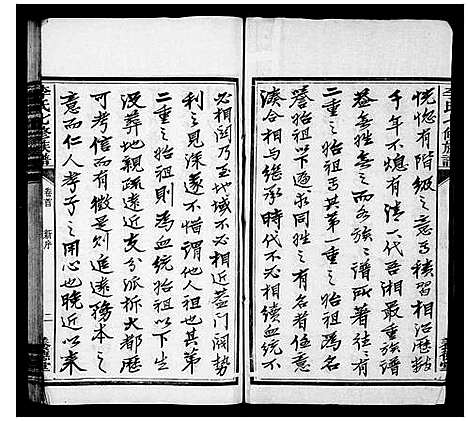 恍惚有階級之意乎積習相沿歷數
千年不熄有清一代吾湘最重族譜
各姓各族之譜成著往往有
二重之始祖其第一重之始祖為名
譽始祖下逮求同姓之有名者任意
湊合相與繼承時代不必相續血統不
必相關乃至地域不必相近若門閥勢
利之見深遂不惜謂他人祖也其第
二重之始祖則為血統始祖以下生
沒葬地親疏遠近支分派析大都歷歷
可考信而有徵是則追遠務本之
意而仁人孝子之用心也晚近以來
李氏七修族譜
卷首
新序
二
李氏七修族譜